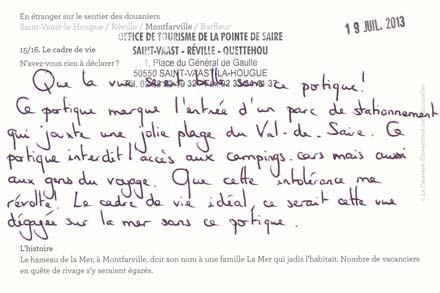 En étranger sur le sentier des douaniers
Saint-Vaast-la Hougue / Réville / Montfarville / Barfleur
19 JUIL. 2013
OFFICE DE TOURISME DE LA POINTE DE SAIRE
SAINT-VAAST - RÉVILLE - QUETTEHOU
15/16. Le cadre de vie
N'avez-vous rien à déclarer ?
1, Place du Général de Gaulle
50550 SAINT-VAAST-LA-HOUGUE
Que la vue serait belle sans ce portique !
Ce portique marque l'entrée d'un parc de stationnement
qui jouxte une jolie plage du Val-de-Saire. Ce
portique interdit l'accès aux campings-cars mais aussi
aux gens du voyage. Que cette intolérance me
révolte ! Le cadre de vie idéal, ce serait cette vue
dégagée sur la mer sans ce portique.
L'histoire
Le hameau de la Mer, à Montfarville, doit son nom à une famille La Mer qui jadis l'habitait. Nombre de vacanciers
en quête de rivage s'y seraient égarés.